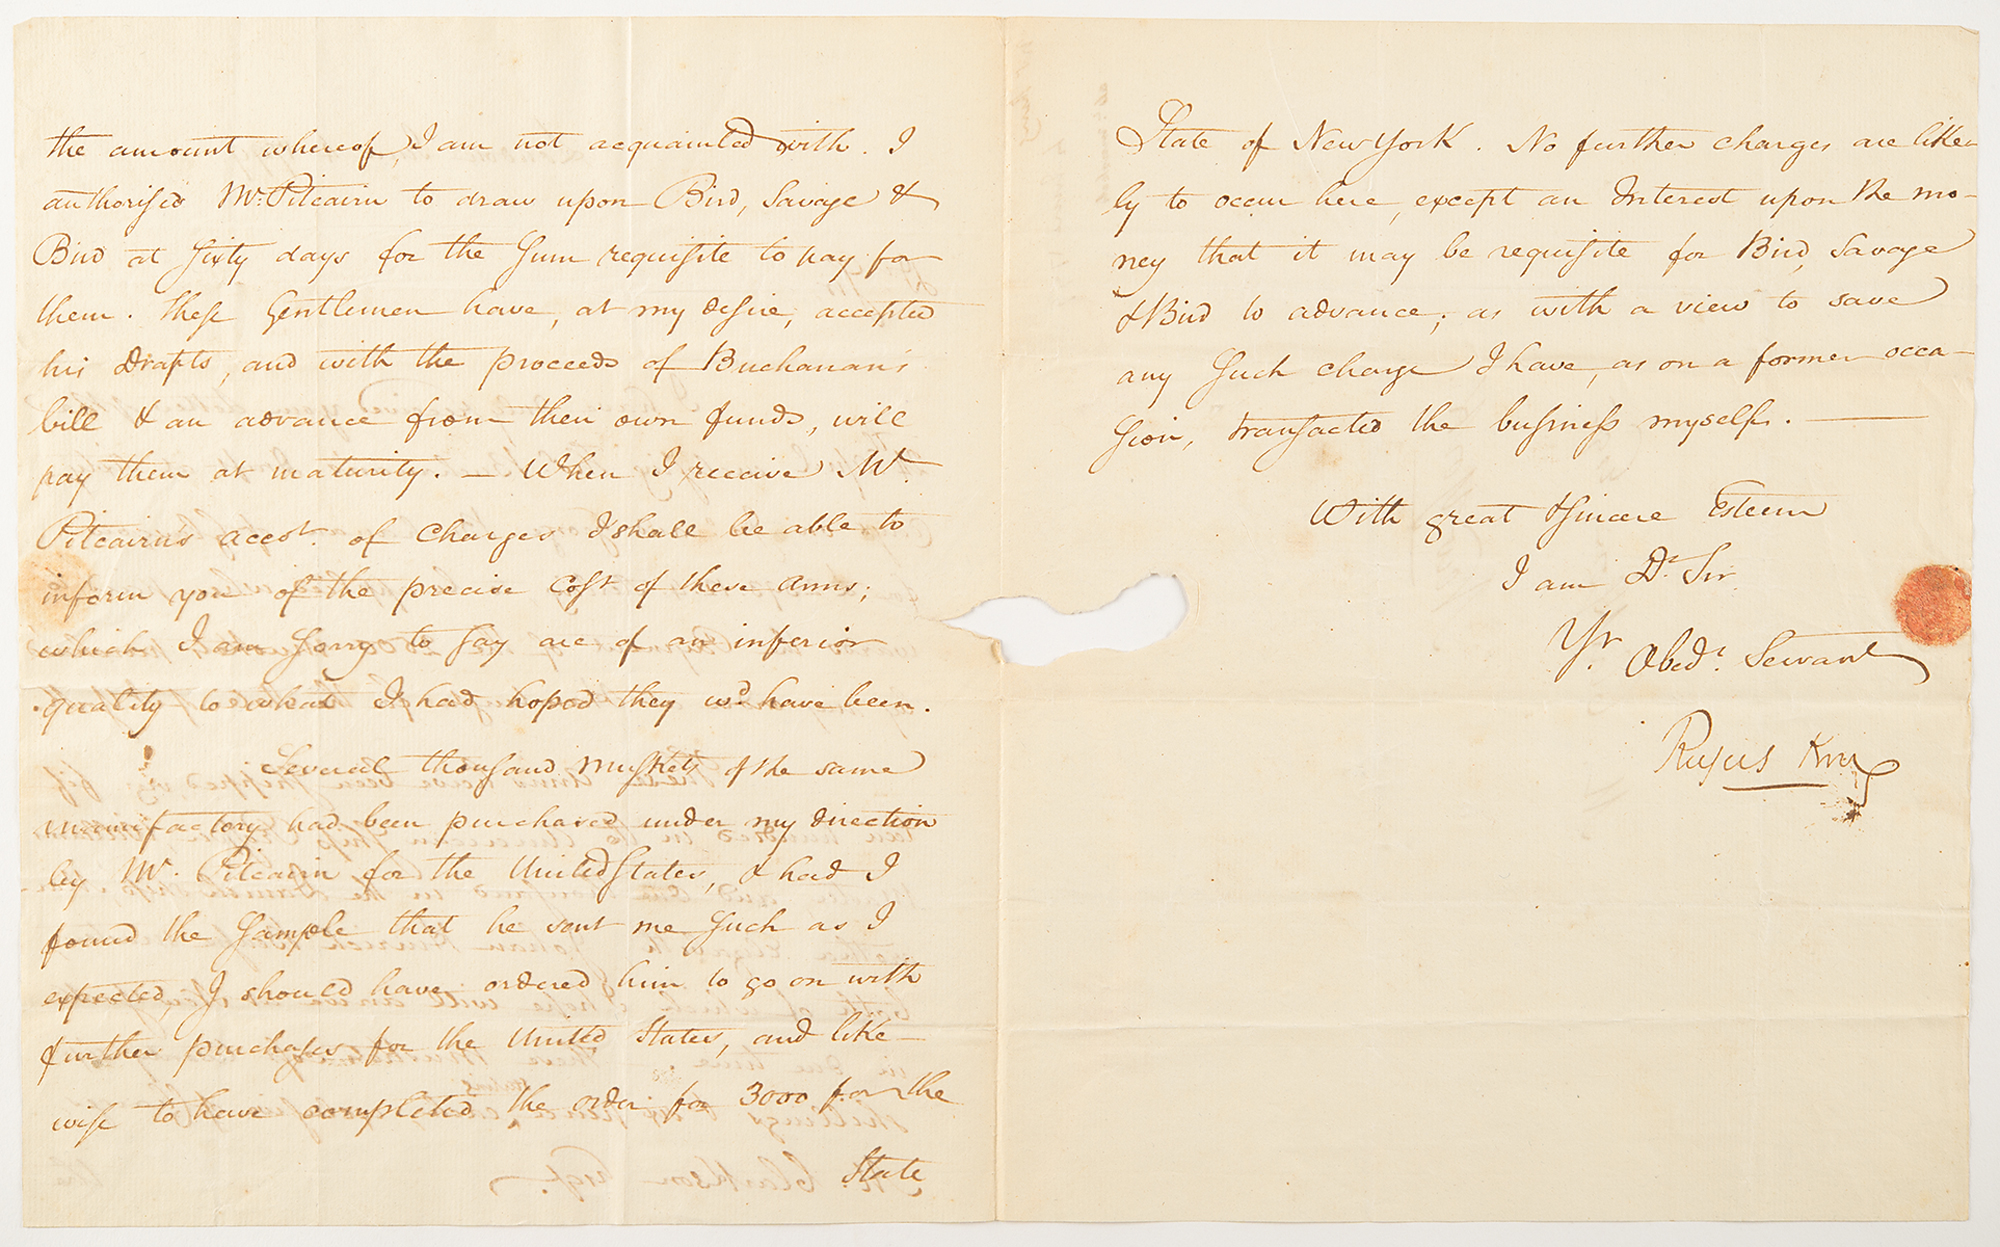 the amount whereof, I am not acquainted with. I
authorised Mr. Pitcairn to draw upon Bird, Savage &
Bird at sixty days for the sum requisite to pay for
them. these Gentlemen have, at my desire, accepted
his Drafts, and with the proceeds of Buchanan's
bill & an advance from their own funds, will
pay them at maturity. — When I receive Mr.
Pitcairn's accot. of charges I shall be able to
inform you of the precise cost of these arms;
which I am sorry to say are of an inferior
quality to what I had hoped they wd. have been.
Several thousand muskets of the same
manufactory had been purchased under my direction
by Mr. Pitcairn for the United States, & had I
found the sample that he sent me such as I
expected, I should have ordered him to go on with
further purchases for the United States, and like-
wise to have completed the order for 3000 for the
State
State of New York. No further charges are like-
ly to occur here, except an Interest upon the mo-
ney that it may be requisite for Bird, Savage
& Bird to advance; as with a view to save
any such charge I have, as on a former occa-
sion, transacted the business myself. —
With great & sincere Esteem
I am Dr. Sir
Yr. Obedt. Servant
Rufus King